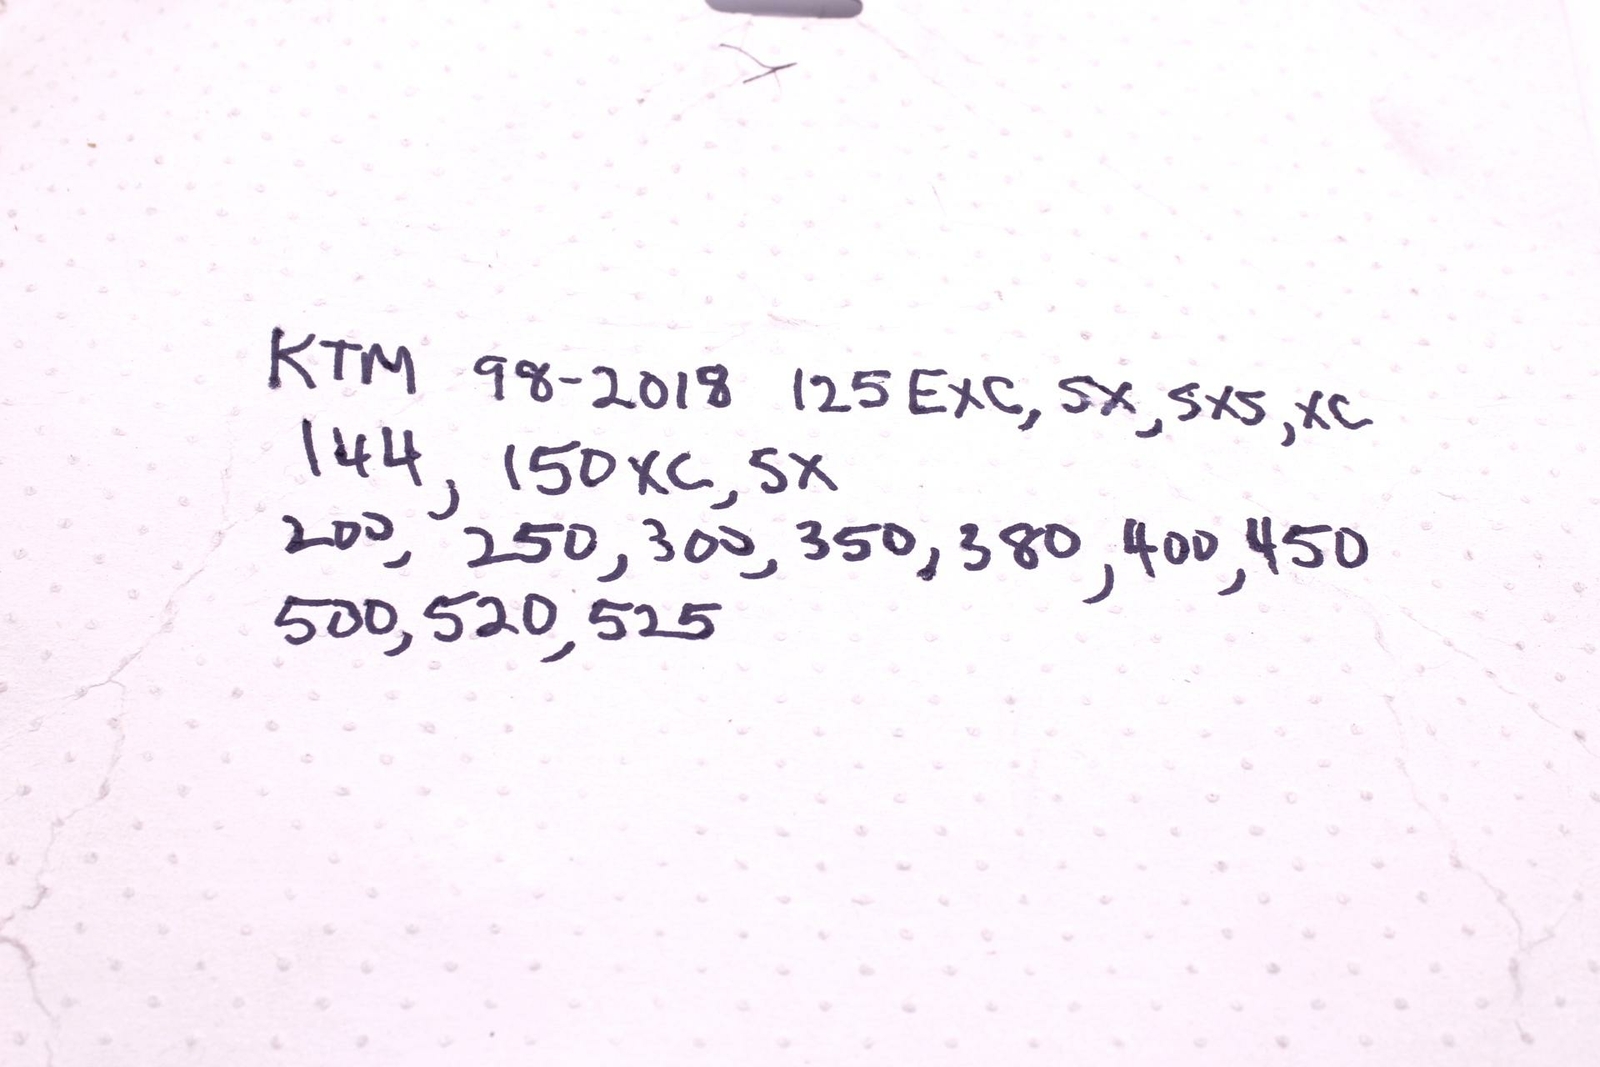 KTM 98-2018 125 EXC, SX, SXS, XC
144, 150 XC, SX
200, 250, 300, 350, 380, 400, 450
500, 520, 525